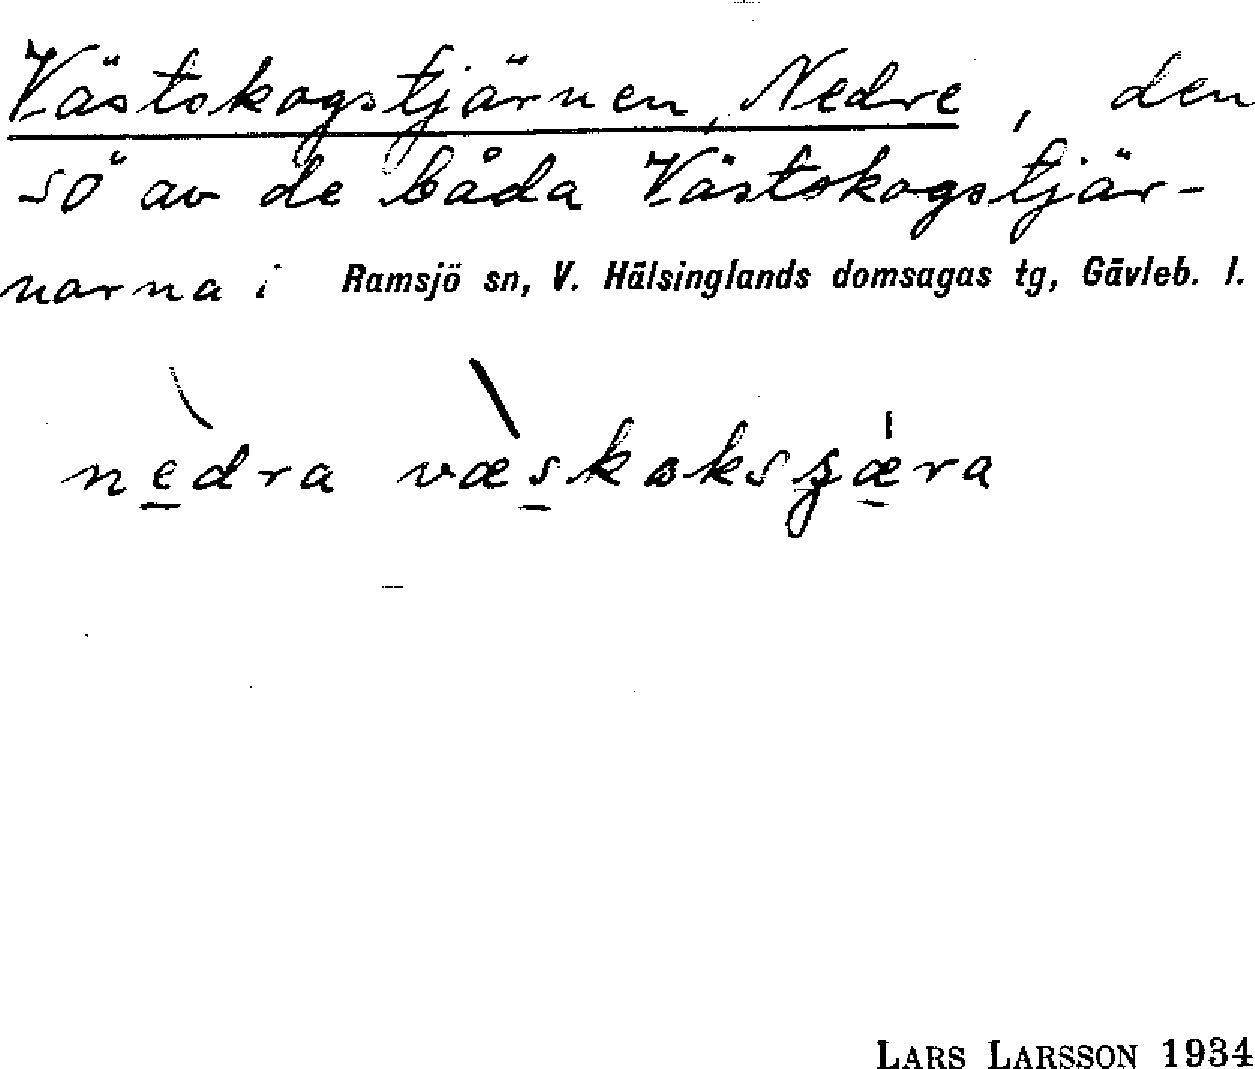 Västskogstjärnen, Nedre, den
sö av de båda Västskogstjär-
narna i Ramsjö sn, V. Hälsinglands domsagas tg, Gävleb. l.
nedra
LARS LARSSON 1934